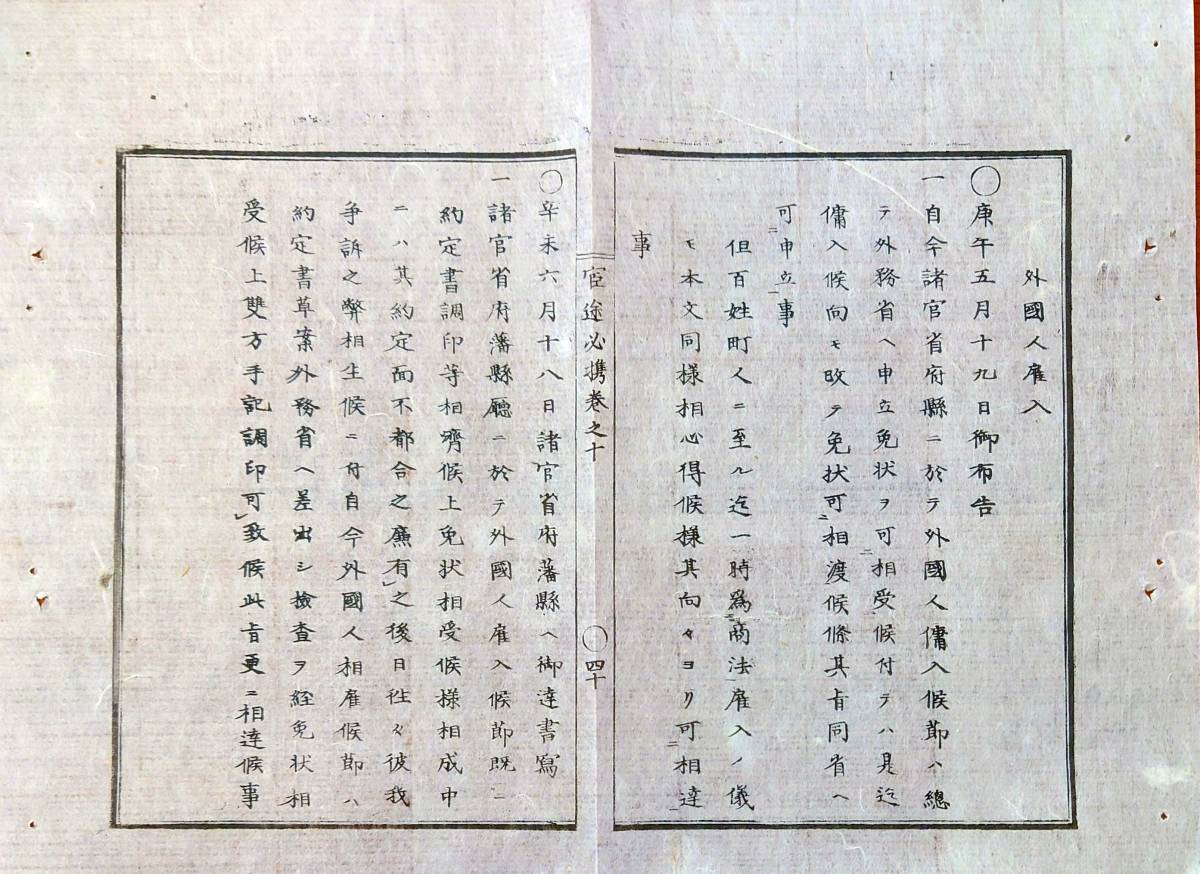 外國人雇入
〇庚午五月十九日御布告
一自今諸官省府縣ニ於テ外國人傭入候節ハ總
テ外務省ヘ申立免状ヲ可ニ相受候付テハ是迄
傭入候向モ改テ免状可ニ相渡候條其旨同省ヘ
可ニ申立一事
但百姓町人ニ至ル迄一時爲商法雇入ノ儀
モ本文同樣相心得候樣其向々ヨリ可ニ相達一
事
官途必携巻之十
〇四十
〇辛未六月十八日諸官省府藩縣ヘ御達書寫
一諸官省府藩縣廳ニ於テ外國人雇入候節既ニ
約定書調印等相濟候上免状相受候樣相成中
ニハ其約定面不都合之廉有」之後日往々彼我
争訴之弊相生候ニ付自今外國人相雇候節ハ
約定書草案外務省ヘ差出シ檢査ヲ経免状相
受候上雙方手記調印可」致候此旨更ニ相達候事